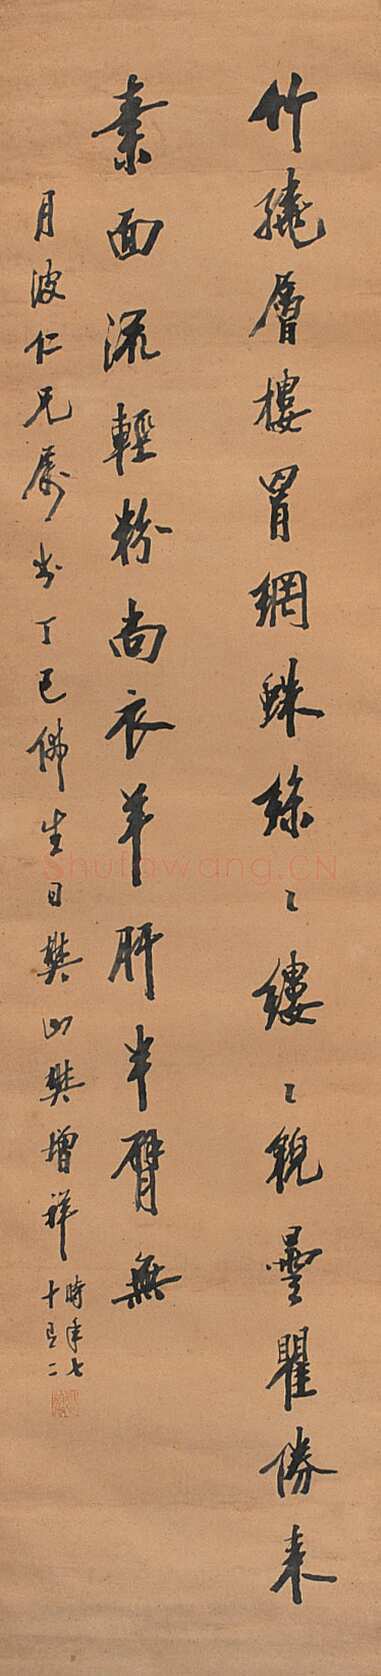 竹繞層樓罥網蛛絲〻縷〻貌曇瞿勝來
素面流輕粉尚衣羊肝半臂無
月波仁兄屬書丁巳佛生日樊山樊增祥
時年七
十有二
Shufawang.CN